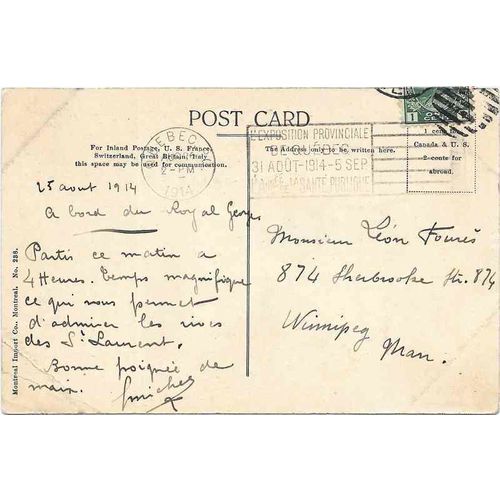 POST CARD
For Inland Postage, U. S. France,
Switzerland, Great Britain, Italy
this space may be used for communication.
The Address only to be written here.
1 cent
Canada & U. S.
2-cents for
abroad.
QUEBEC
2-PM
1914
L'EXPOSITION PROVINCIALE
DE QUEBEC
31 AOÛT-1914-5 SEP
LA SANTÉ PUBLIQUE
1
25 aout 1914
A bord du Royal George
Partis ce matin a
4 Heures. Temps magnifique
ce qui nous permet
d'admirer les rives
des St Laurent.
Bonne poignée de
main.
Monsieur Léon Fourès
874 Sherbrooke Str. 874
Winnipeg
Man.
Montreal Import Co., Montreal. No. 238.